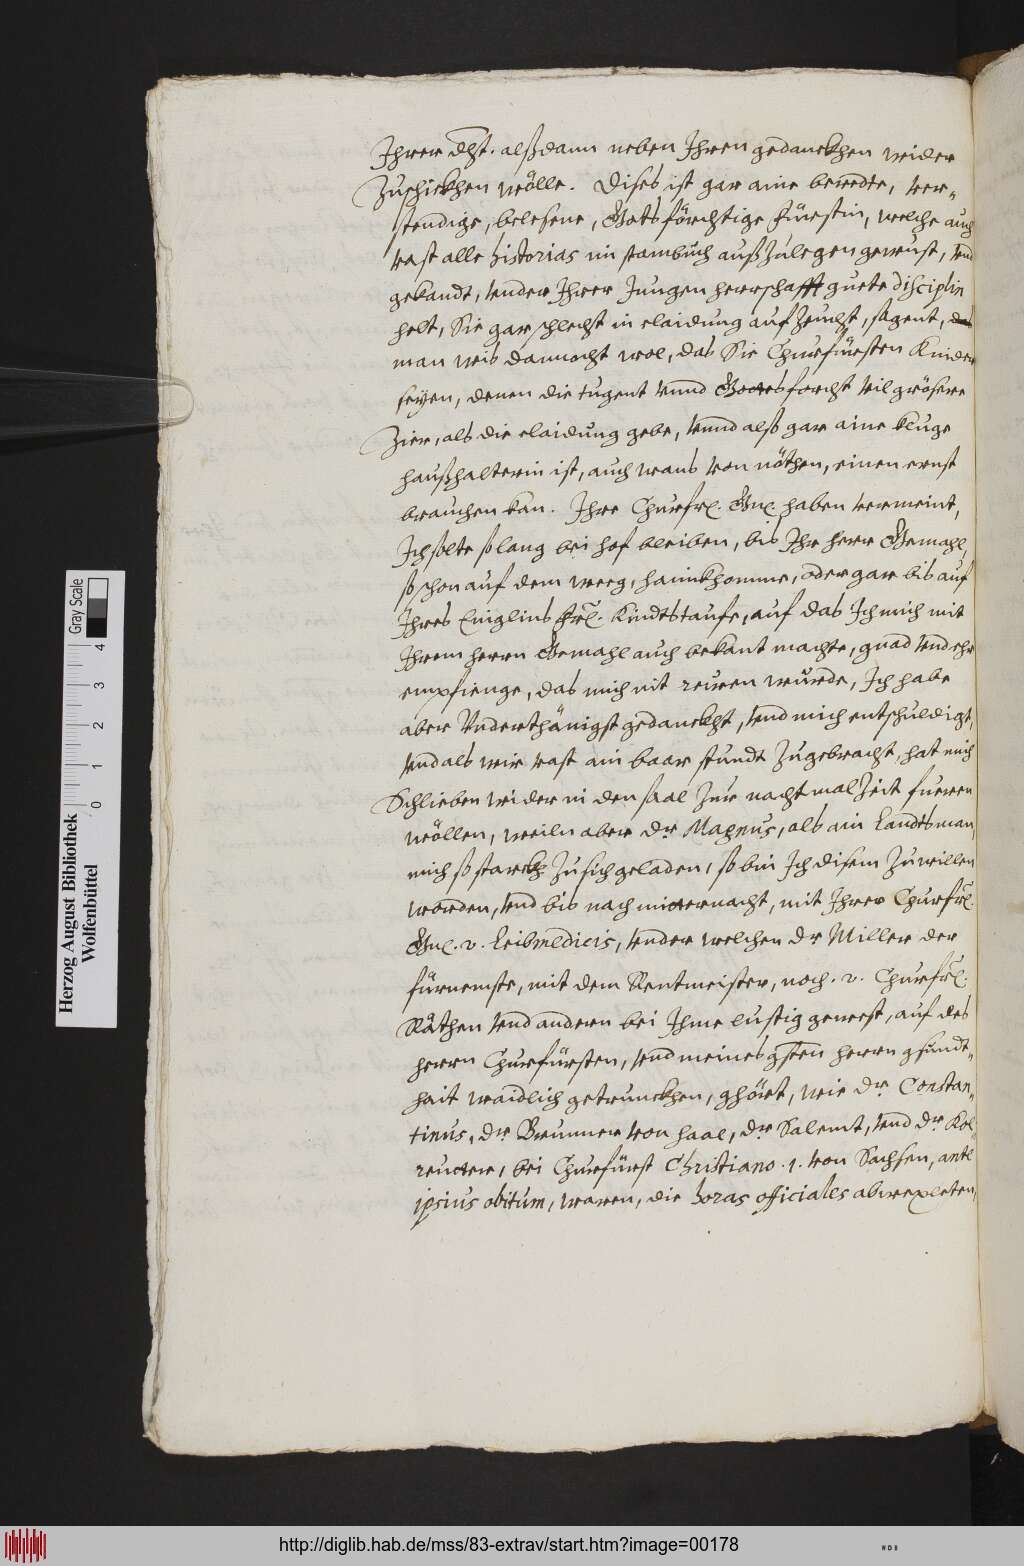 Ihrer dht. alßdann neben Ihren gedanckhen wider
Zuschickhen wölle. Dises ist gar aine beredte, ver„
stendige, belesene, Gotsförchtige Fürstin, welche auch
vast alle historias im stambůch außzulegen gewust, vnd
gekandt, vnder Ihrer Jungen herrschafft guete disciplin
helt, Sie gar schlecht in claidung aufzeucht, sagent,
man wis dannocht wol, das Sie Churfürsten Kinder
seyen, denen die tugent vnnd Gottesforcht vil grösere
Zier, als die claidung gebe, vnnd alß gar aine kluge
haußhalterin ist, auch wans von nöthen, einen ernst
brauchen kan. Ihre Churfrl. Gnl. haben vermeint,
Ich solte so lang bei hof bleiben, bis Ihr herr Gemahl,
so schon auf dem weeg, haimkhomme, oder gar bis auf
Ihres Eniglins Frl. Kindtstaufe, auf das Ich mich mit
Ihrem herrn Gemahl auch bekant machte, gnad vnd ehr
empfienge, das mich nit reuen wurde, Ich habe
aber Vnderthänigst gedanckht, vnd mich entschuldigt,
Vnd als wir vast ain baar stundt Zugebracht, hat mich
Schlieben wider in den saal Zur nachtmalZeit fueren
wöllen, weiln aber dr. Magnus, als ain Landtsman,
mich so starckh Zu sich geladen, so bin Ich disem Zu willen
worden, vnd bis nach mitternacht, mit Ihrer Churfrl.
Gnl. v. Leibmedicis, vnder welchen dr Miller der
fürnemste, mit dem Rentmeister, noch. v. Churfrl.
Räthen vnd andern bei Ihme lustig gewest, auf des
herrn Churfürsten, vnd meines gsten herrn gsundt„
hait waidlich getrunckhen, ghört, wie dr. Constan„
tinus, dr. Brunner von Haal, dr Salmut, vnd dr. Kol„
reutter, bei Churfürst Christiano .1. von Sachsen, ante
ipsius obitum, waren, die horas officiales abwexleten,
Herzog August Bibliothek
Wolfenbüttel
Gray Scale
0 1 2 3 4
http://diglib.hab.de/mss/83-extrav/start.htm?image=00178